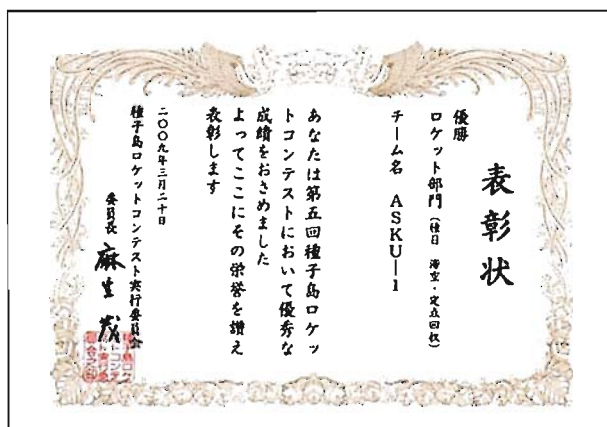 表彰状
優勝
ロケット部門(種目 滞空・定点回収)
チーム名 ASKU―1
あなたは第五回種子島ロケッ
トコンテストにおいて優秀な
成績をおさめました
よってここにその栄誉を讃え
表彰します
二〇〇九年三月二十日
種子島ロケットコンテスト実行委員会
委員長 麻生 茂